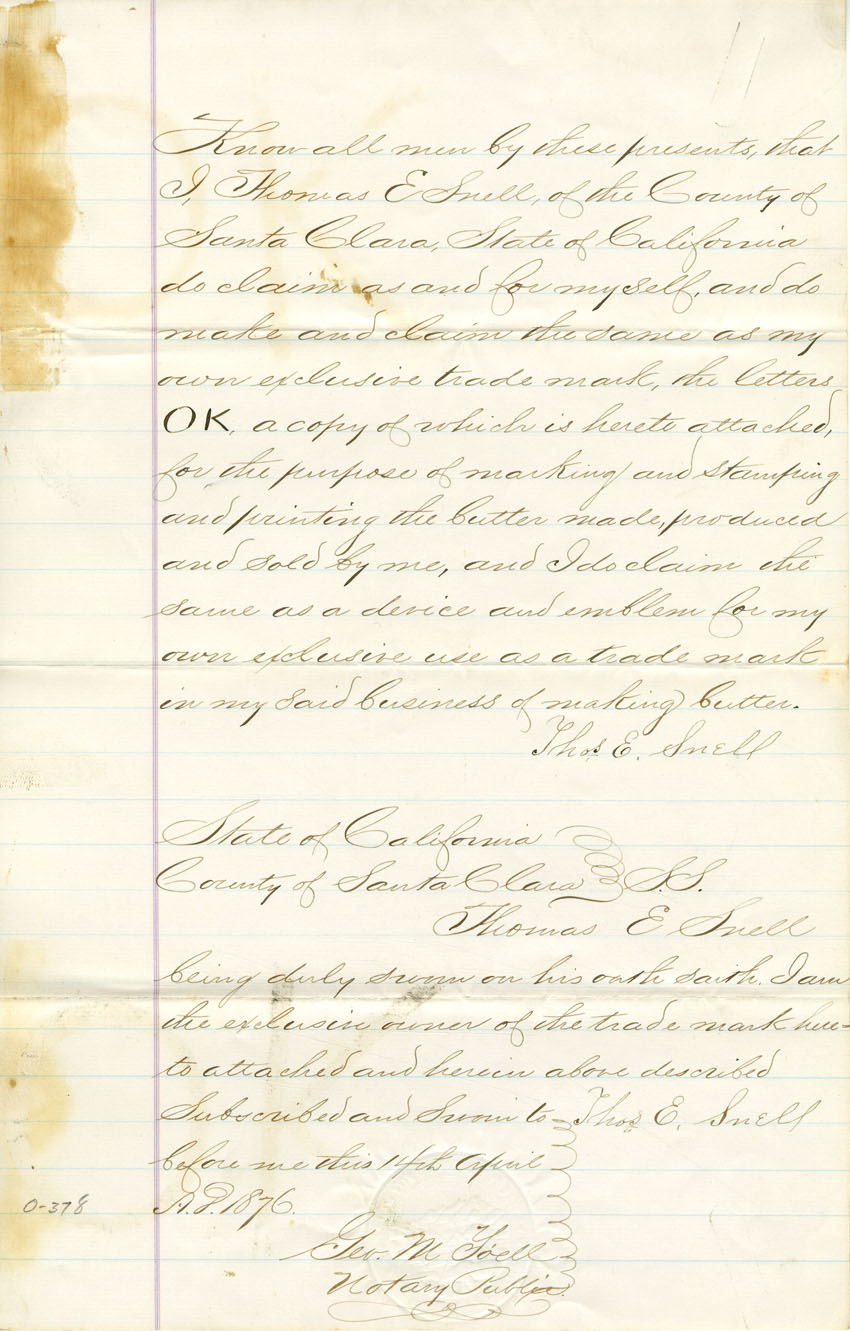 Know all men by these presents, that
I, Thomas E Snell, of the County of
Santa Clara, State of California
do claim as and for myself, and do
make and claim the same as my
own exclusive trade mark, the letters
OK, a copy of which is hereto attached,
for the purpose of marking and stamping
and printing the butter made, produced
and sold by me, and I do claim the
same as a device and emblem for my
own exclusive use as a trade mark
in my said business of making butter.
Thos E. Snell
State of California
County of Santa Clara } S.S.
Thomas E Snell
being duly sworn on his oath saith. I am
the exclusive owner of the trade mark here=
to attached and herein above described
Subscribed and Sworn to Thos E. Snell
before me this 14th April
A.D. 1876.
O-378
Geo. M
Notary Public